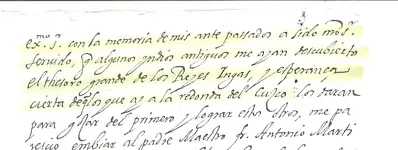 exmo. sr. con la memoria de mis ante passados a sido nro. sr.
servido, q algunos yndios antiguos me ayan descubierto
el thesoro grande de los Reyes Ingas, y esperança
cierta de los que ay a la redonda del Cuzco lo daran
para gozar del primero y lograr esta obra, me pa
recio embiar al padre Maestro fr. Antonio Marti